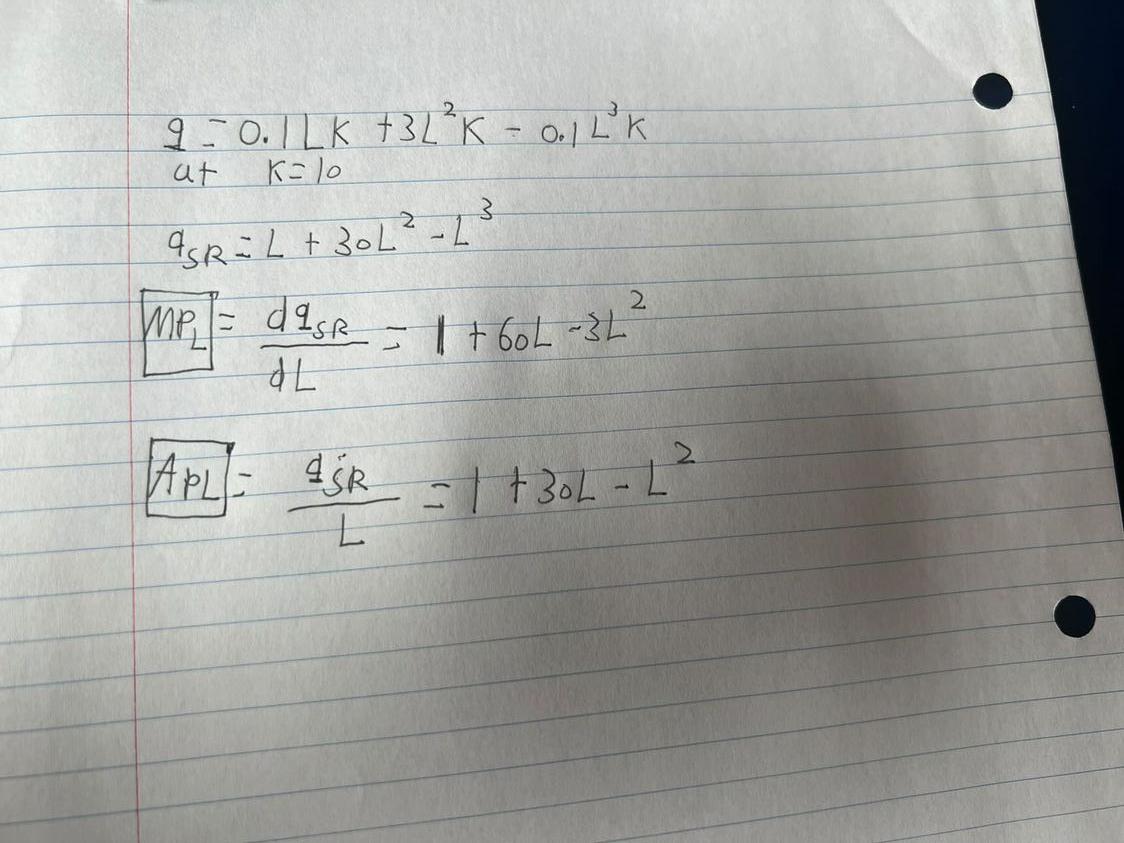 q = 0.1LK + 3L²K - 0.1L³K
at K=10
qSR = L + 30L² - L³
MPL = dqSR/dL = 1 + 60L - 3L²
APL = qSR/L = 1 + 30L - L²